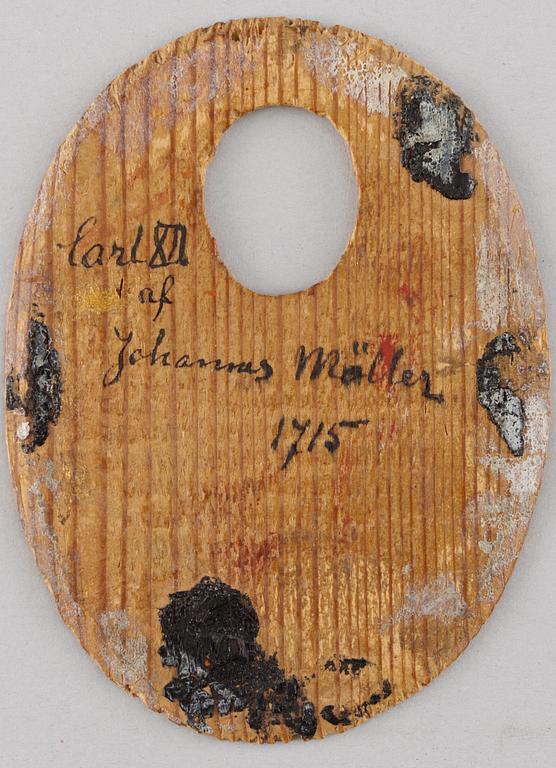 Carl XII
af
Johannes Möller
1715